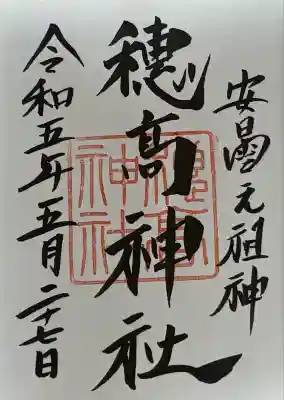 安曇元祖神
穂高神社
令和五年五月二十七日
穂高
神社